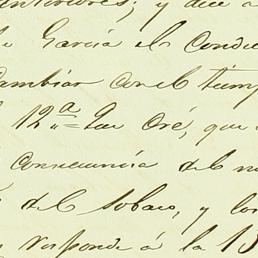 anteriores; y dice a
García el Condu
Cambiar con el tiemp
12ª= Que Oré, que
consecuencia del m
del Sobaco, y los
responde á la 13